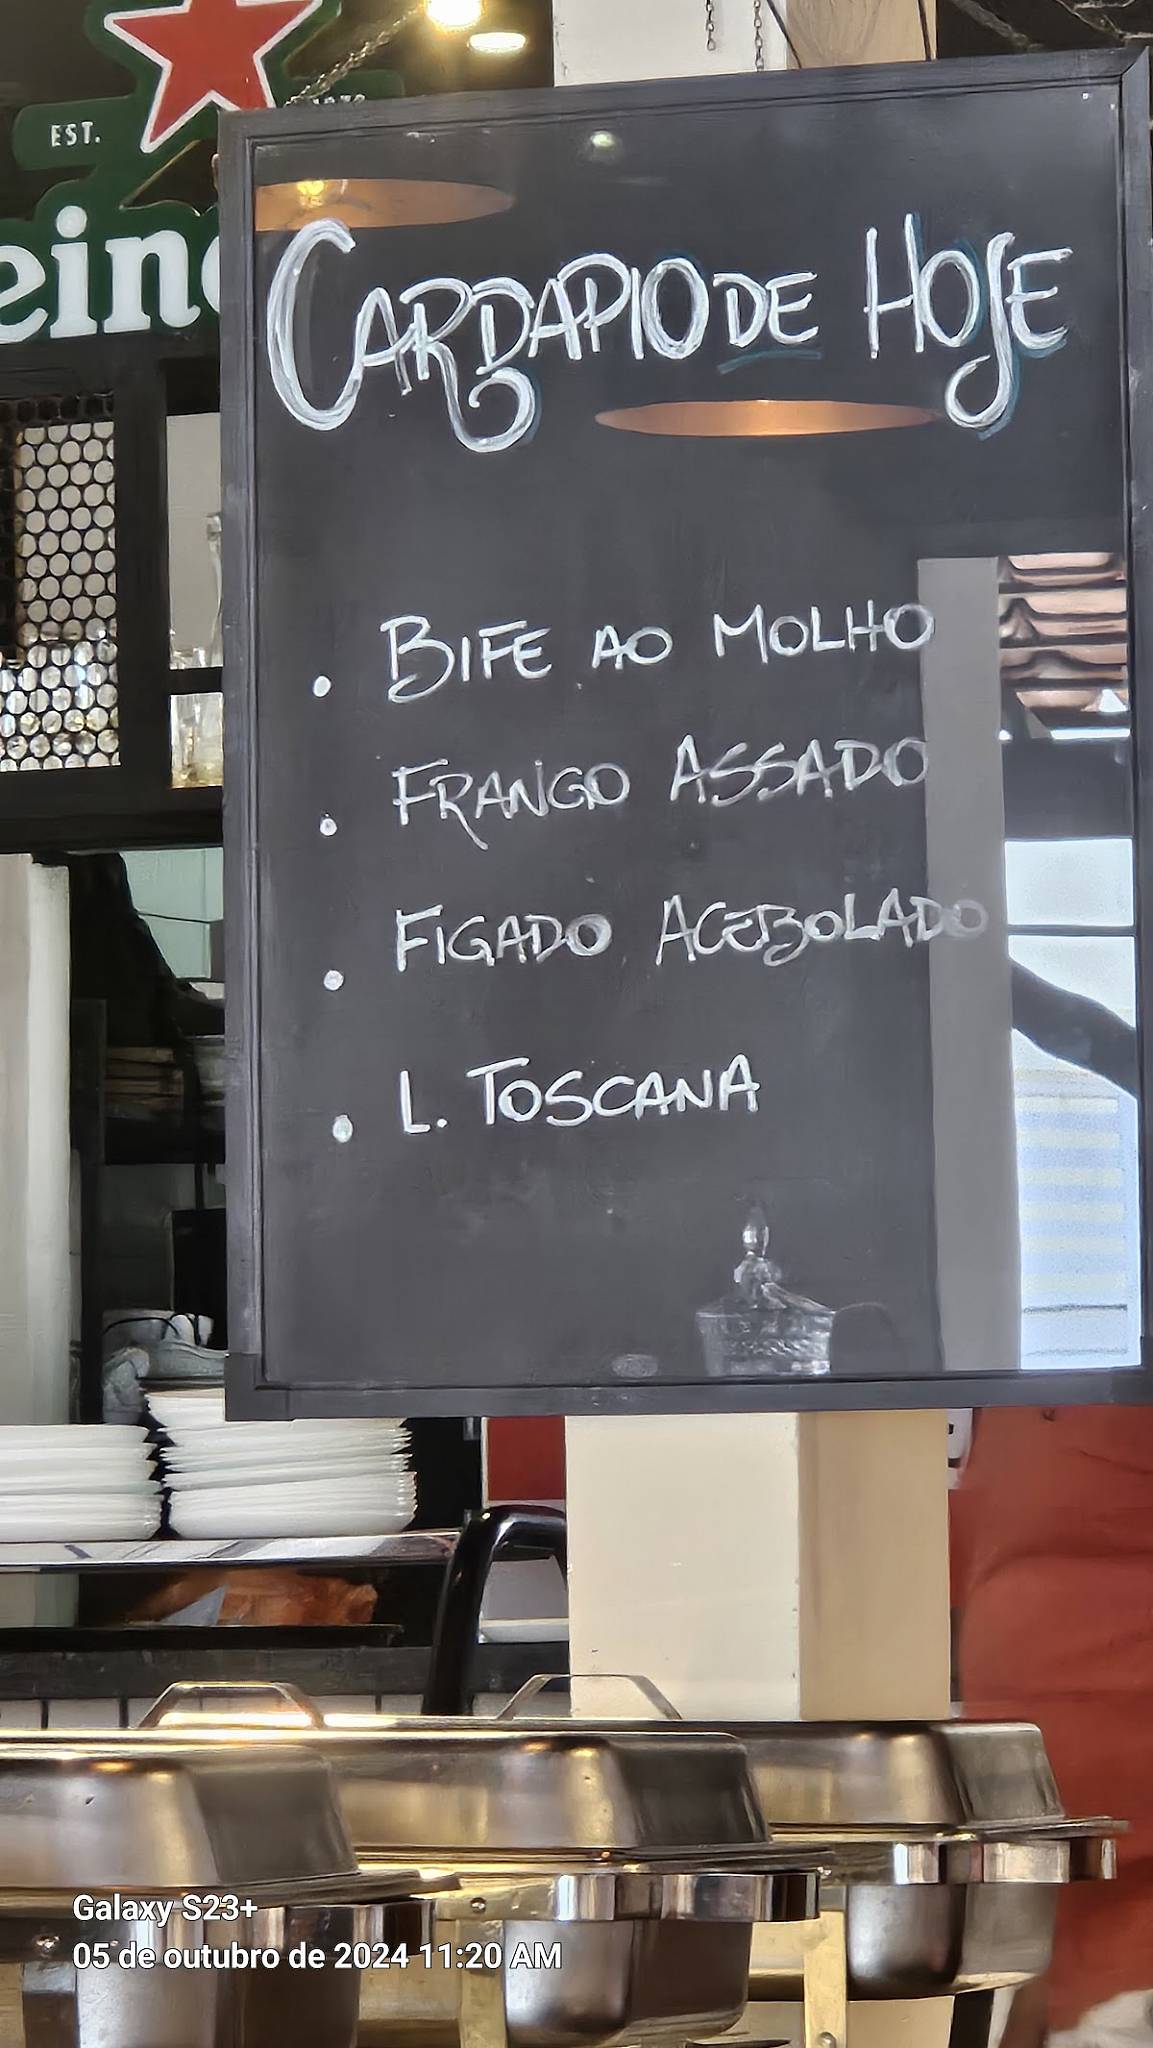 EST.
eine
CARDAPIO DE HOJE
• BIFE AO MOLHO
• FRANGO ASSADO
• FIGADO ACEBOLADO
• L. TOSCANA
Galaxy S23+
05 de outubro de 2024 11:20 AM